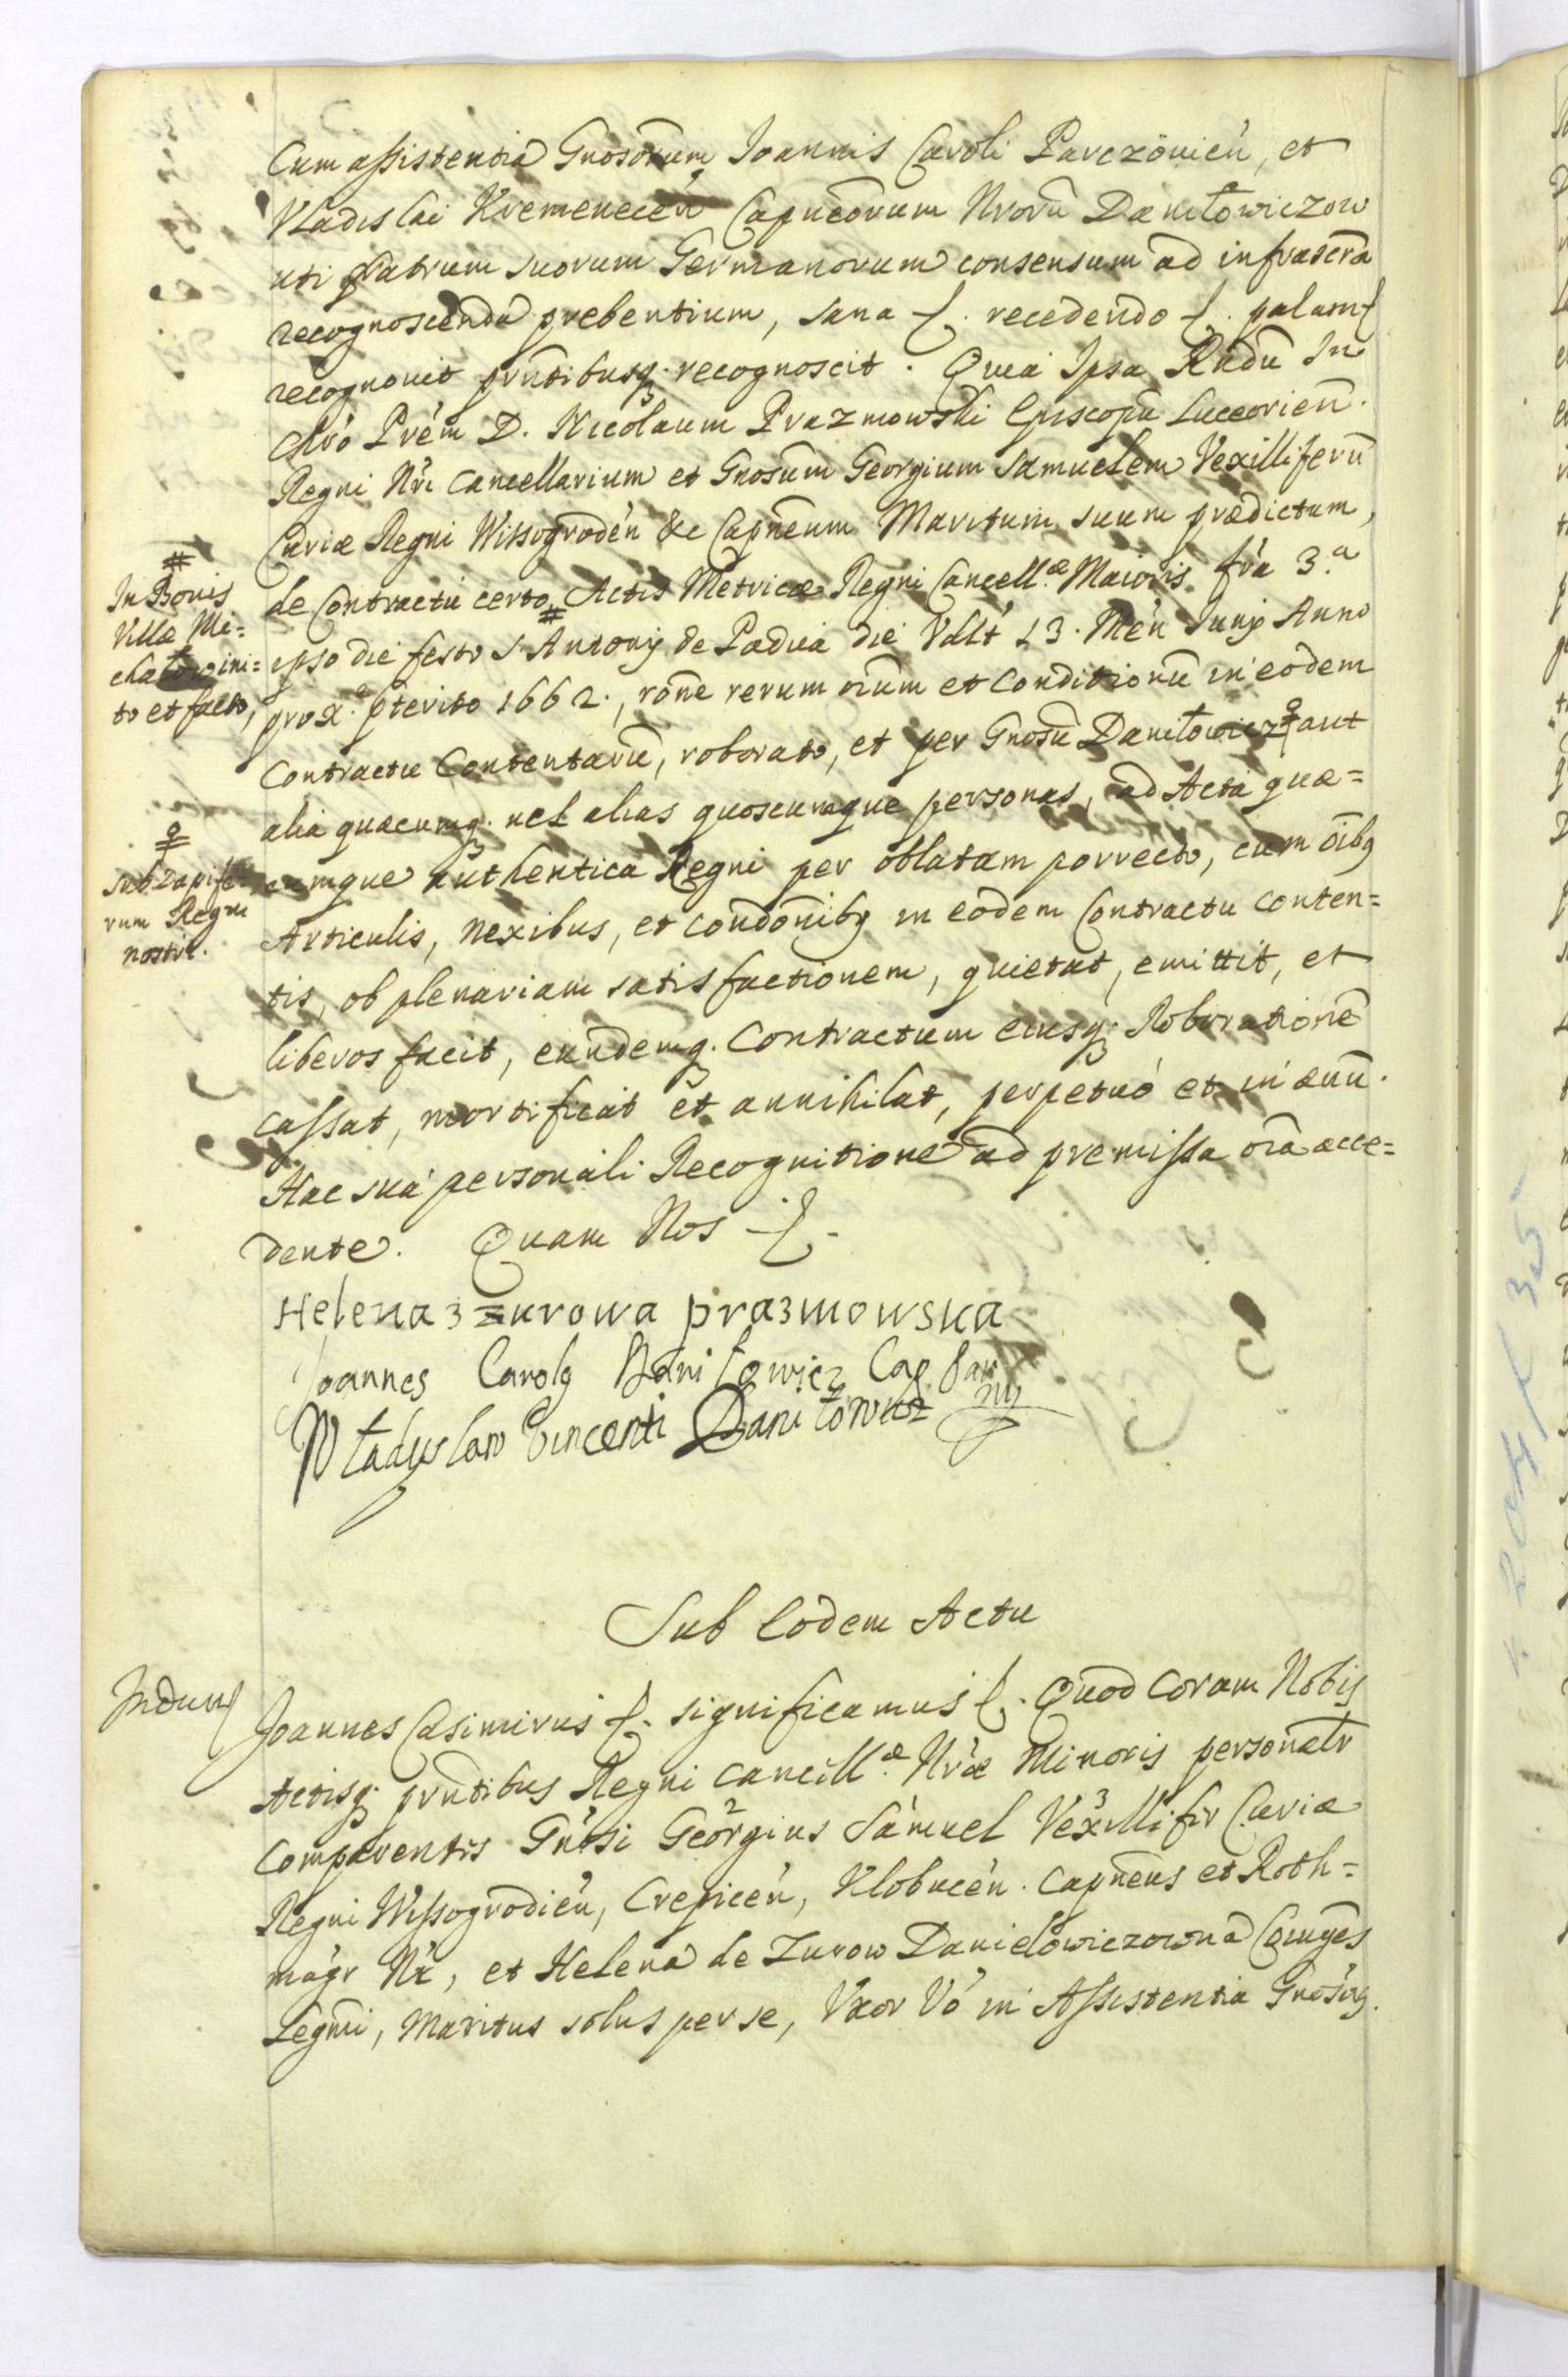 Cum assistentia Gnosorum Joannis Caroli Parczöuień, et
Vladislai Kremeneceń Capneorum Nrorū Daniłowiczow
uti fratrum suorum Germanorum consensum ad infrascrā
recognoscenda prebentium, sana &. recedendo &. palam &
recognouit prūtibusq. recognoscit. Quia Ipsa Rndū In
Chrō Prēm D. Nicolaum Prazmowski Episcopū Luceorień.
Regni Nri Cancellarium et Gnosum Georgium Samuelem Vexilliferū
Curiæ Regni Wissogrodeń &c Capneum Maritum suum prædictum,
de Contractu certo # Actis Metricæ Regni Cancellæ Maioris fra 3.a
ipso die festo S. Antonij de Padua die Vdlt 13. Meń Junij Anno
prox.o pterito 1662., rōne rerum oium et Conditionū in eodem
Contractu Contentarū, roborato, et per Gnosū Daniłowicz aut
alia quæcumq. uel alias quoscumque personas, ad Acta quæ=
cumque authentica Regni per oblatam porrecto, cum oibq
Articulis, nexibus, et condōnibq in eodem Contractu conten=
tis, ob plenariam satisfactionem, quietat, emittit, et
liberos facit, eundemq. Contractum eiusq. Roborationē
cassat, mortificat et annihilat, perpetuó et in æuū.
Hac suá personali Recognitione ad premissa oia acce=
dente. Quam Nos &.
#
In Bonis
Villæ Mi=
ini=
to et facto,
subdapife=
rum Regni
nostri.
Helena z zurowa prazmowska
Joannes Carolq Daniłowicz Cap Par
Władysław Vincenti Daniłowicz mp
Sub Eodem Actu
Joannes Casimirus &. significamus &. Quod Coram Nobis
Actisq. prūtibus Regni Cancellæ Nræ Minoris personalr
Comparentes Gnosi Georgius Samuel Vexillifer Curiæ
Regni Wissogrodień, Crepiceń, Klobuceń. Capneus et Roth=
magr Nr, et Helena de Zurow Danielowiczowna Coniuges
Legmi, Maritus solus per se, Vxor Vó in Assistentia Gnosorq.